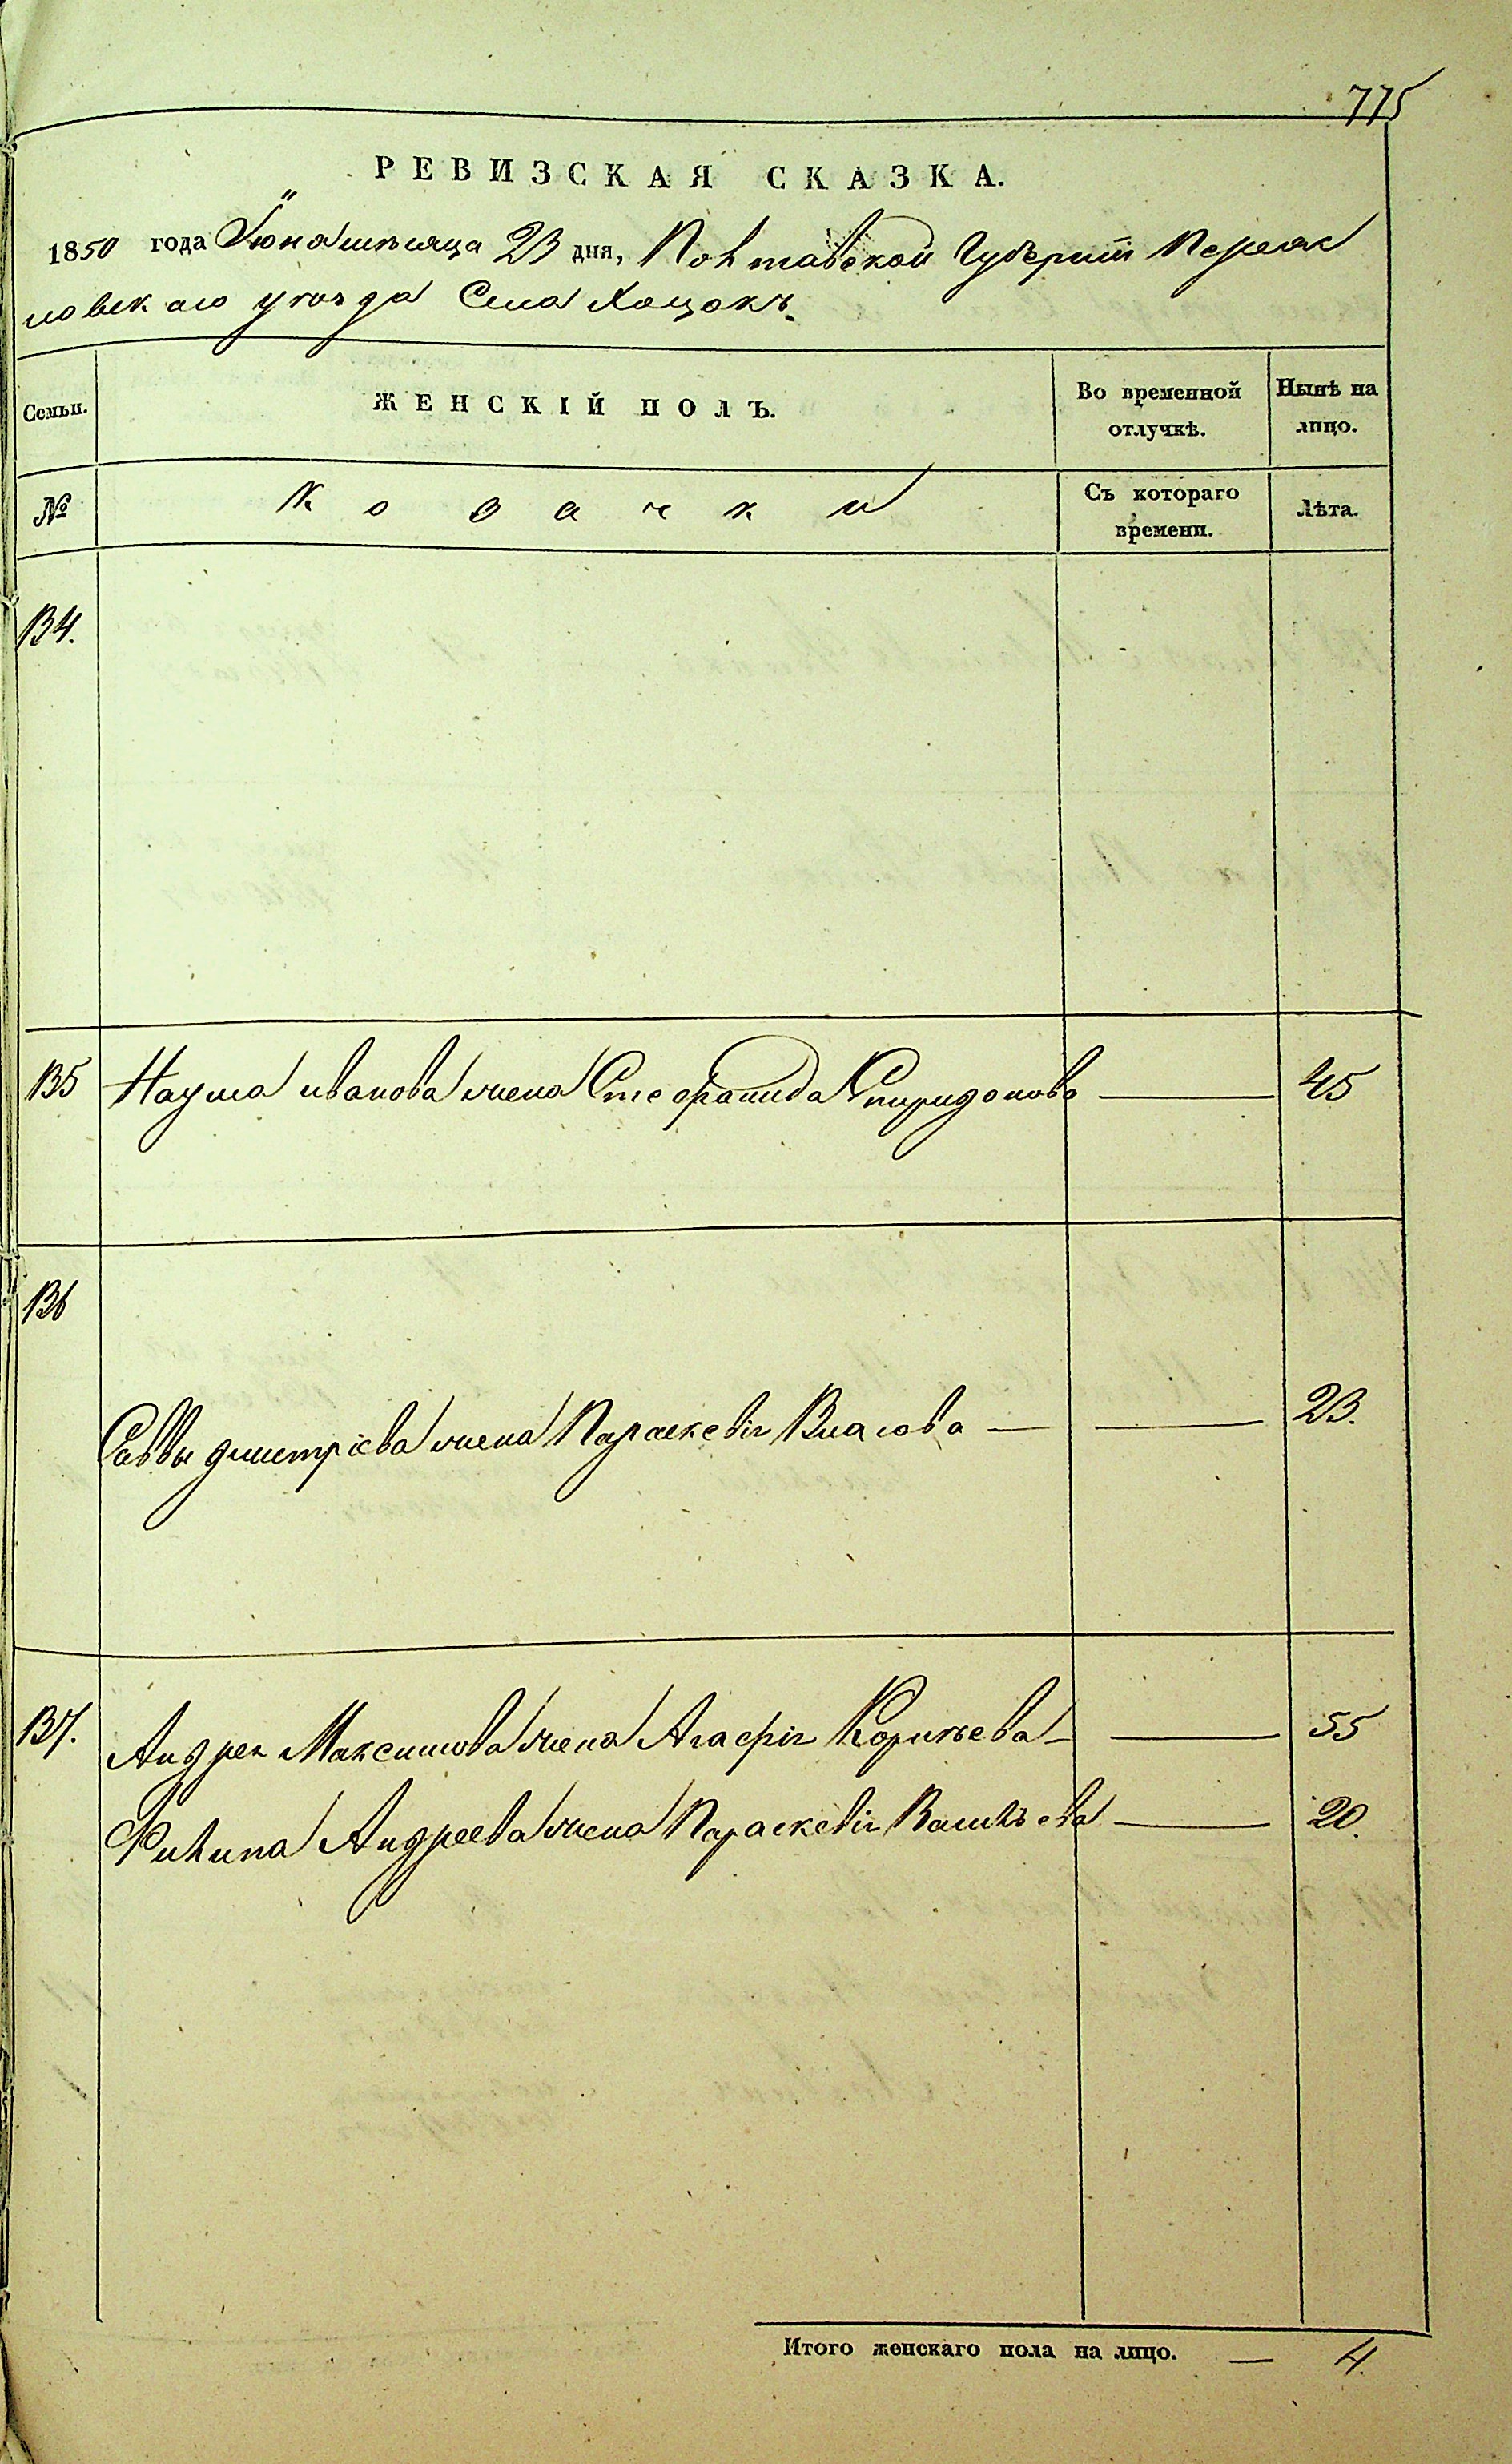 775
РЕВИЗСКАЯ СКАЗКА.
1850 года Іюня мѣсяца 23 дня, Полтавской Губерніи Переяс
ловскаго уѣзда Села Хоцокъ.
Семьи. ЖЕНСКІЙ ПОЛЪ. Во временной отлучкѣ. Нынѣ на лицо.
№ Козачки Съ котораго времени. Лѣта.
134.
135 Наума иванова жена Стефанида Спиридонова — 45
136
Саввы дмитріева жена Параскевія Власова — — 23.
137. Андрея Максимова жена Агафія Корнѣева — — 55
Филипа Андреева жена Параскевія Василъева — 20.
Итого женскаго пола на лицо. — 4.